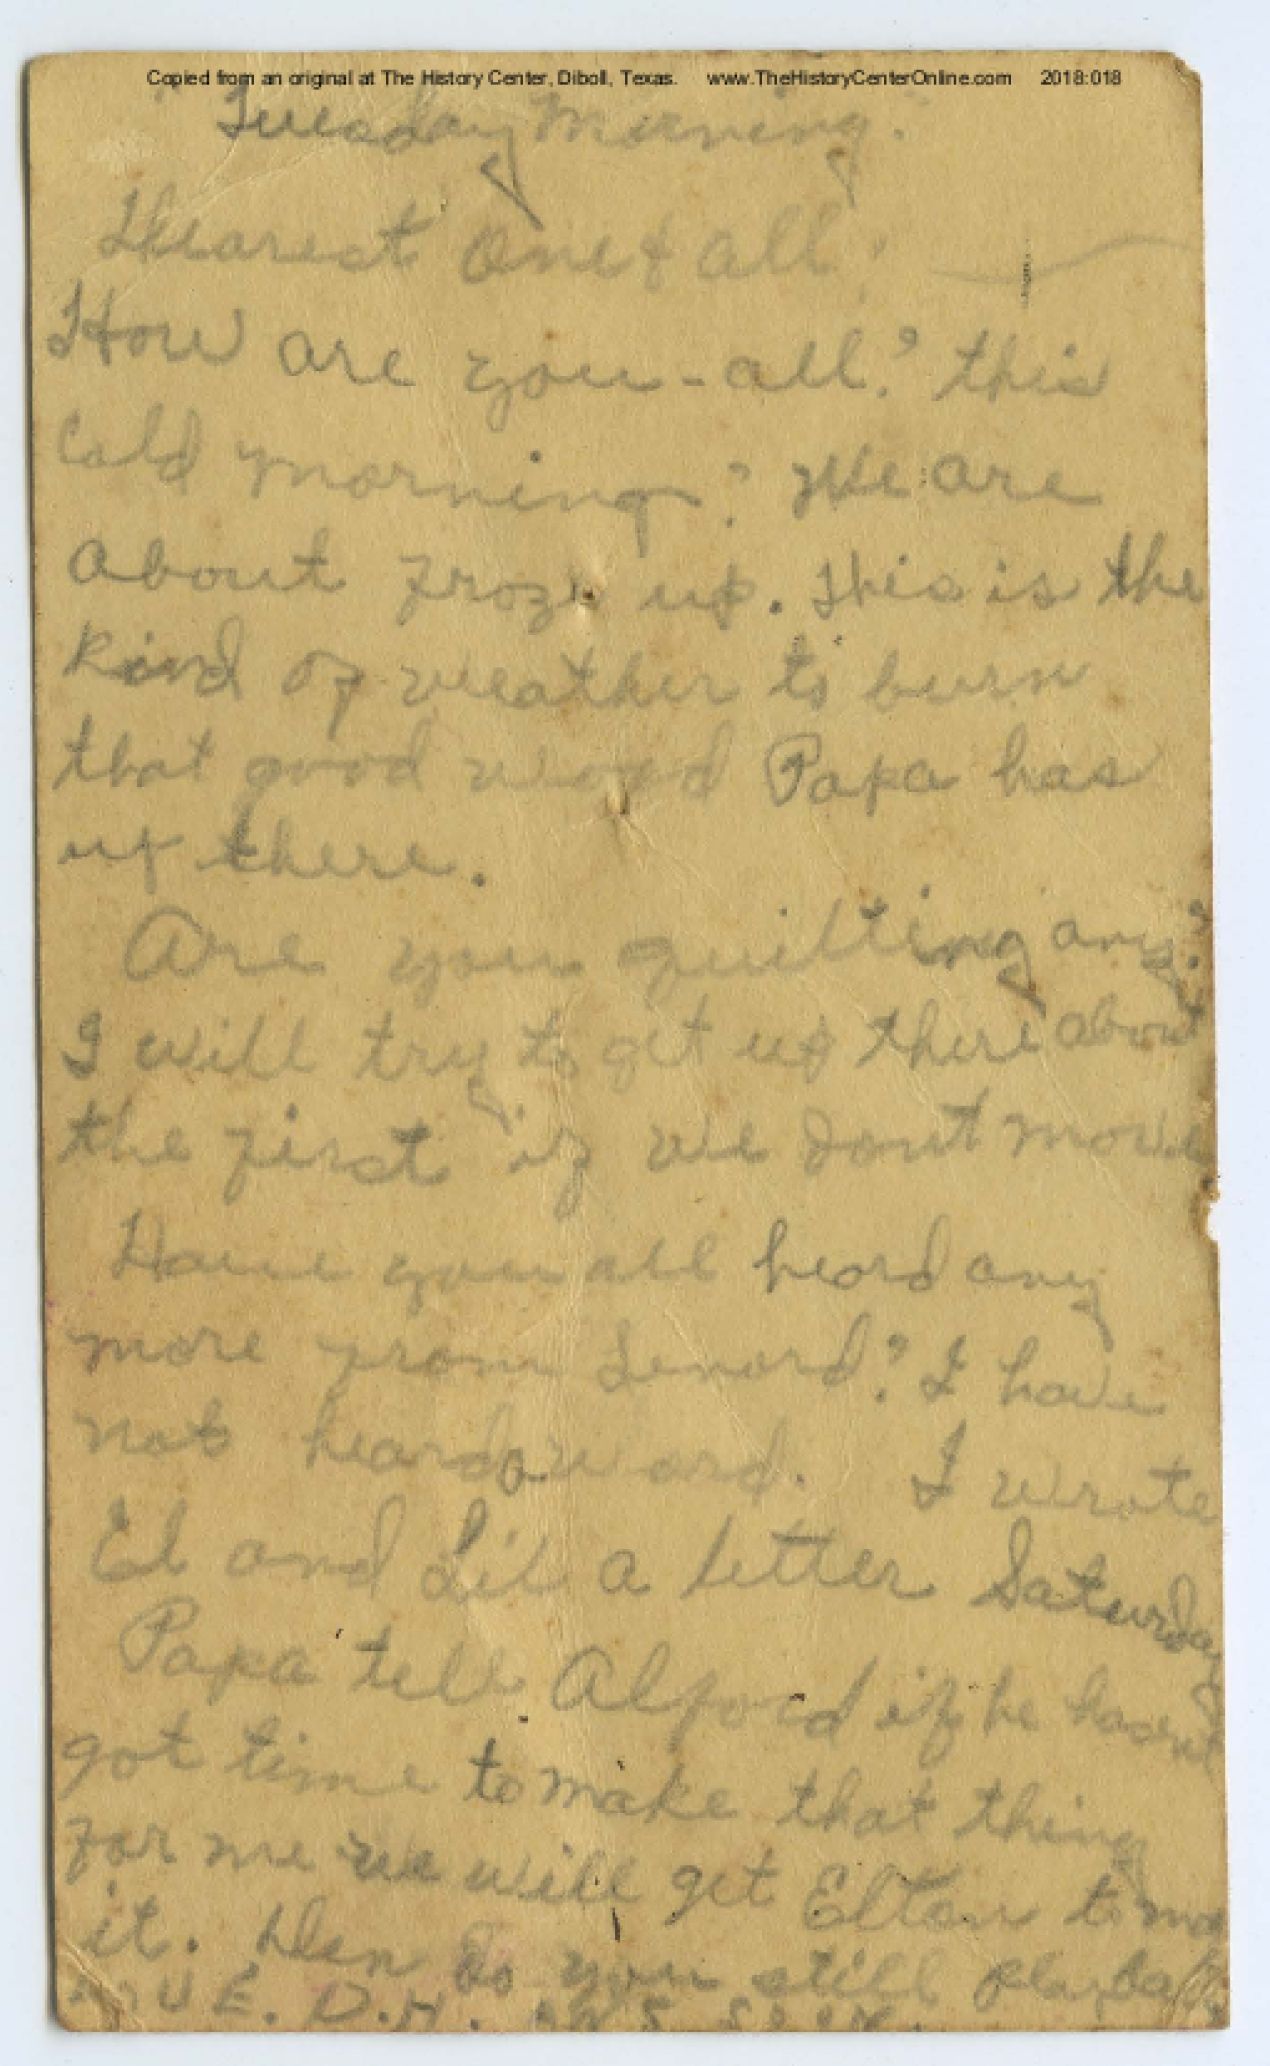 Copied from an original at The History Center, Diboll, Texas. www.TheHistoryCenterOnline.com 2018:018
"Tuesday Morning."
Dearest One & all:
How are you-all? this
cold morning? We are
about froze up. This is the
kind of weather to burn
that good wood Papa has
up there.
Are you quilting any?
I will try to get up there about
the first if we dont move
Have you all heard any
more from Lenord? I have
not heard a word. I wrote
El and Lil a letter Saturday
Papa tell Alford if he hasent
got time to make that thing
for me we will get Elton to
it. do you still play ball